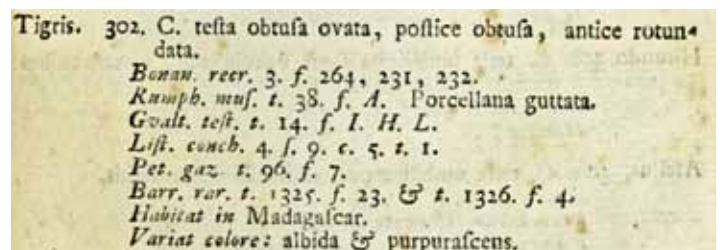 Tigris. 302. C. teſta obtuſa ovata, poſtice obtuſa, antice rotun-
data.
Bonan. recr. 3. f. 264, 231, 232.
Rumph. muſ. t. 38. f. A. Porcellana guttata.
Gvalt. teſt. t. 14. f. I. H. L.
Liſt. conch. 4. ſ. 9. c. 5. t. 1.
Pet. gaz t. 96. f. 7.
Barr. rar. t. 1325. f. 23. & t. 1326. f. 4.
Habitat in Madagaſcar.
Variat colore: albida & purpuraſcens.